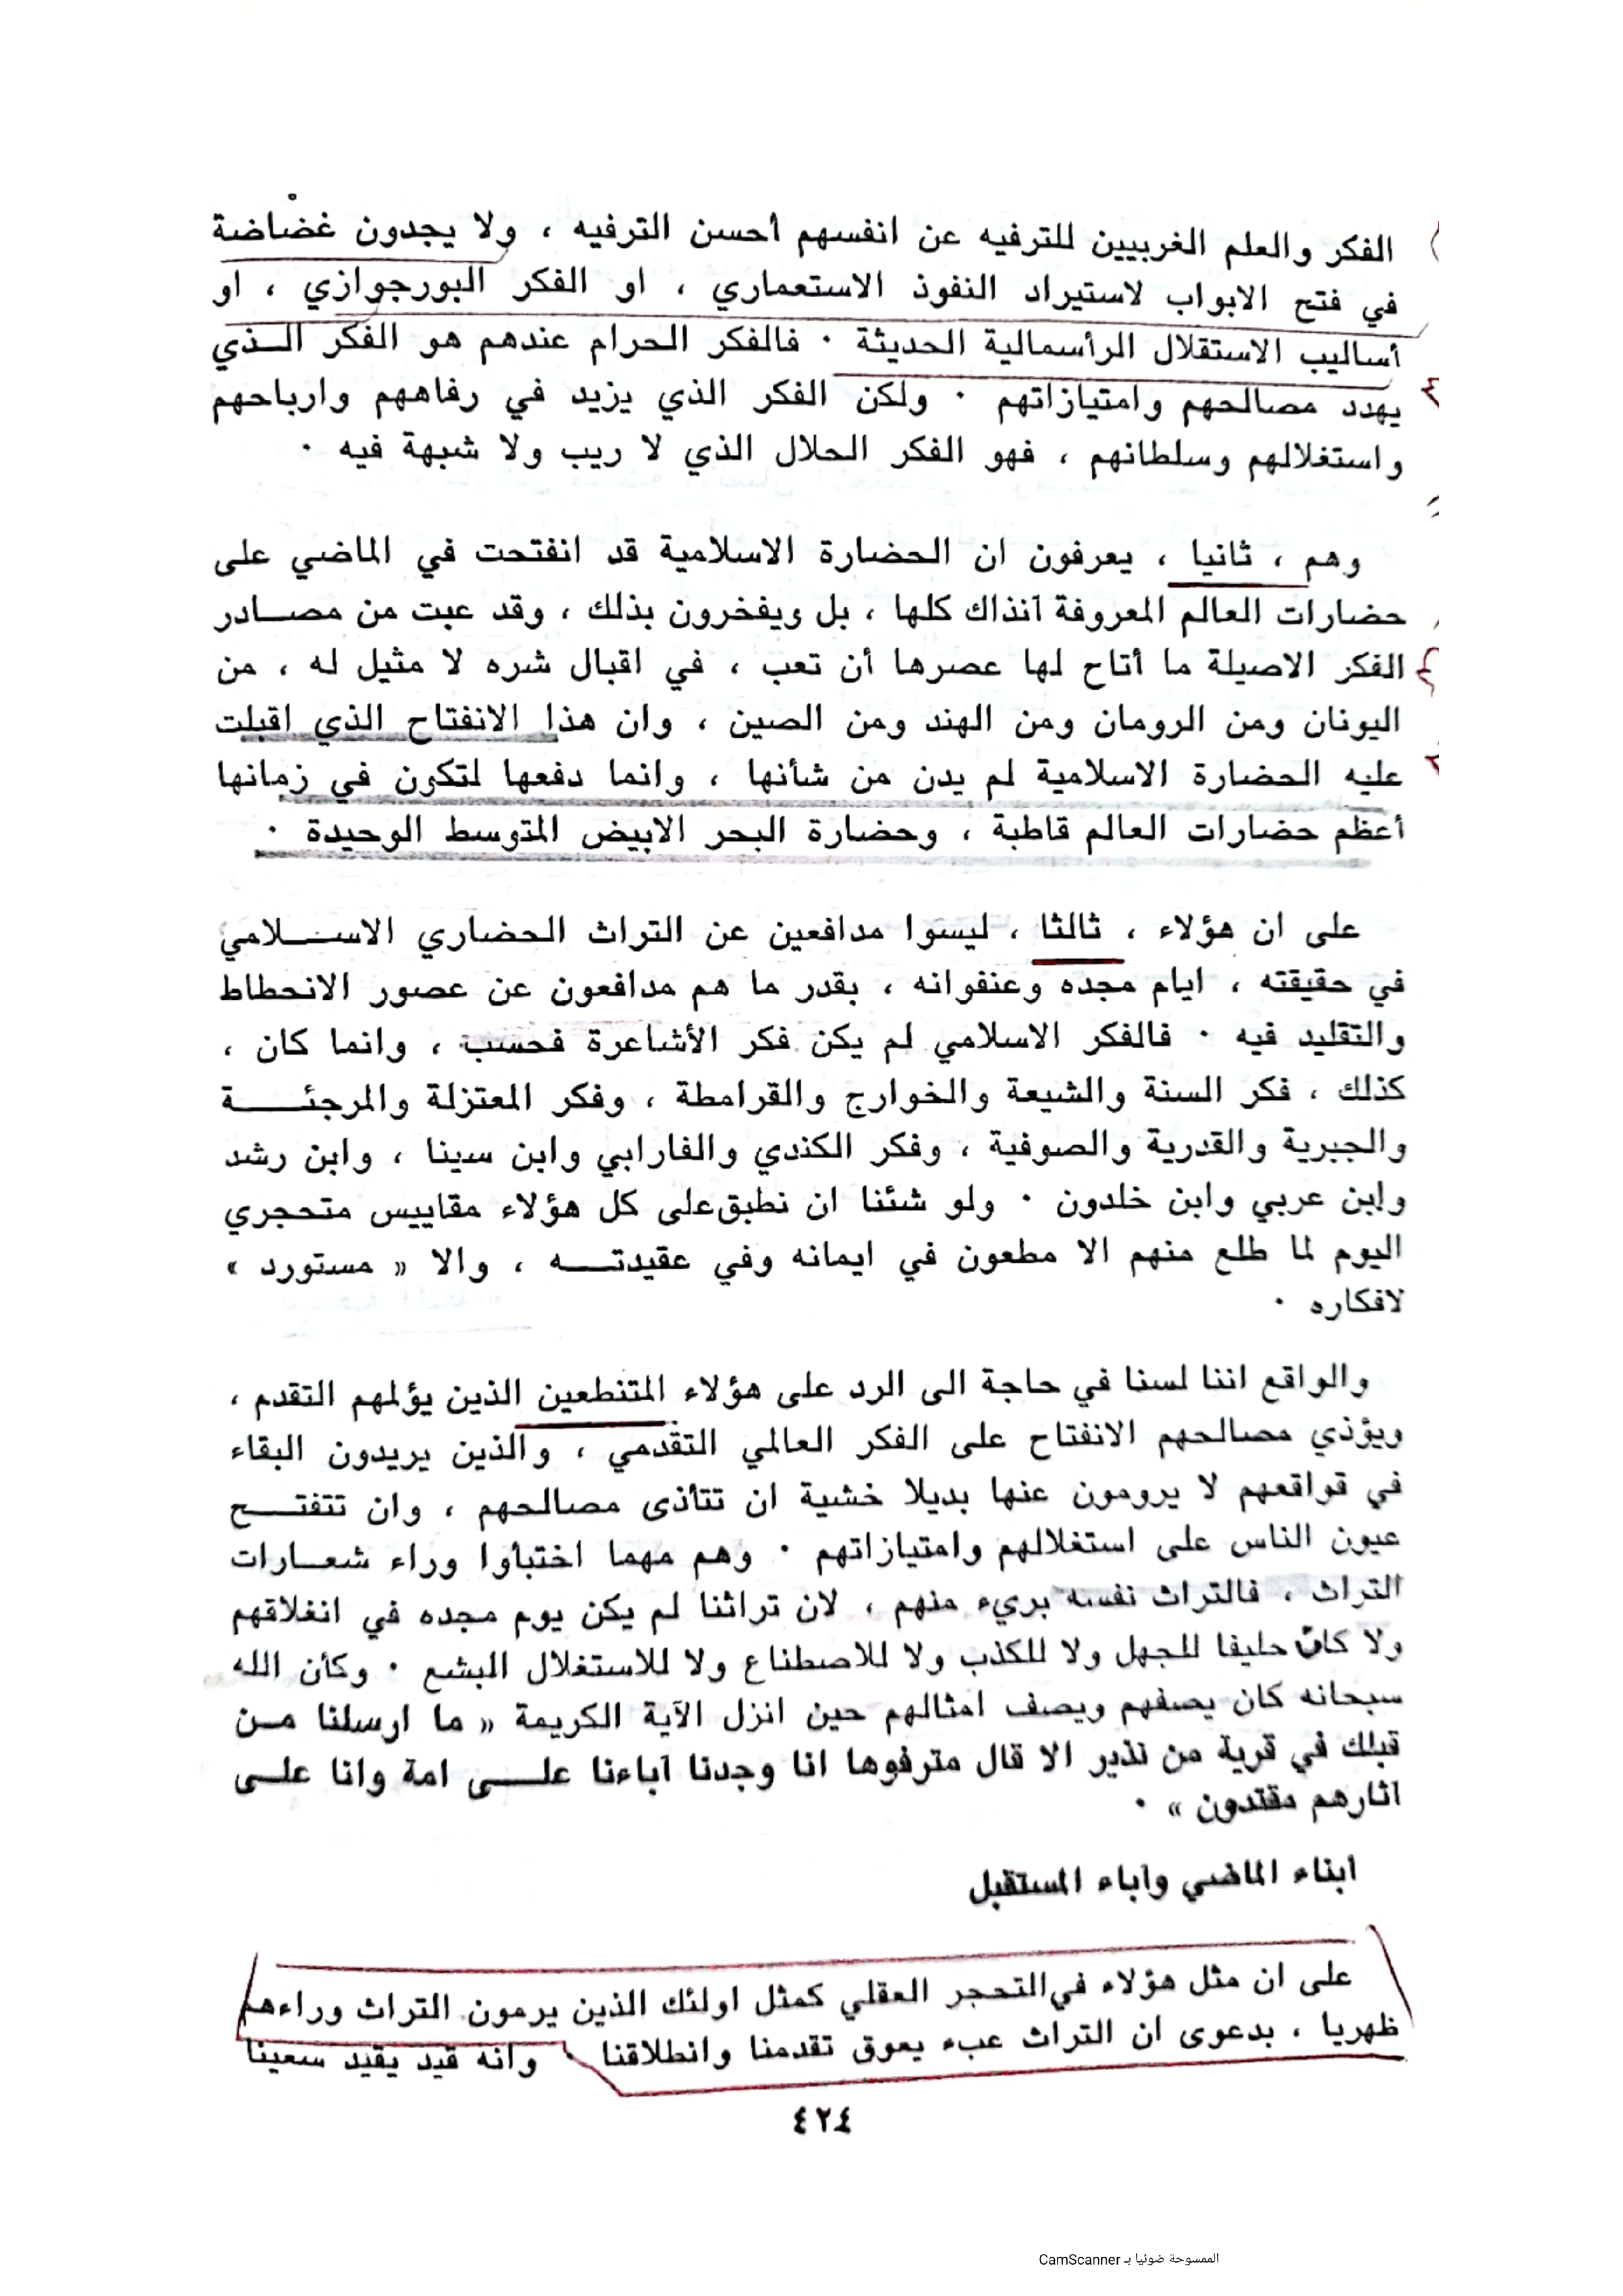 الفكر والعلم الغربيين للترفيه عن انفسهم أحسن الترفيه ، ولا يجدون غضاضة
في فتح الابواب لاستيراد النفوذ الاستعماري ، او الفكر البورجوازي ، او
أساليب الاستقلال الرأسمالية الحديثة ٠ فالفكر الحرام عندهم هو الفكر الـذي
يهدد مصالحهم وامتيازاتهم ٠ ولكن الفكر الذي يزيد في رفاههم وارباحهم
واستغلالهم وسلطانهم ، فهو الفكر الحلال الذي لا ريب ولا شبهة فيه ٠
وهم ، ثانيا ، يعرفون ان الحضارة الاسلامية قد انفتحت في الماضي على
حضارات العالم المعروفة آنذاك كلها ، بل ويفخرون بذلك ، وقد عبت من مصـادر
الفكر الاصيلة ما أتاح لها عصرها أن تعب ، في اقبال شره لا مثيل له ، من
اليونان ومن الرومان ومن الهند ومن الصين ، وان هذا الانفتاح الذي اقبلت
عليه الحضارة الاسلامية لم يدن من شأنها ، وانما دفعها لتكون في زمانها
أعظم حضارات العالم قاطبة ، وحضارة البحر الابيض المتوسط الوحيدة ٠
على ان هؤلاء ، ثالثا ، ليسوا مدافعين عن التراث الحضاري الاسـلامي
في حقيقته ، ايام مجده وعنفوانه ، بقدر ما هم مدافعون عن عصور الانحطاط
والتقليد فيه ٠ فالفكر الاسلامي لم يكن فكر الأشاعرة فحسب ، وانما كان ،
كذلك ، فكر السنة والشيعة والخوارج والقرامطة ، وفكر المعتزلة والمرجئـة
والجبرية والقدرية والصوفية ، وفكر الكندي والفارابي وابن سينا ، وابن رشد
وابن عربي وابن خلدون ٠ ولو شئنا ان نطبق على كل هؤلاء مقاييس متحجري
اليوم لما طلع منهم الا مطعون في ايمانه وفي عقيدتـه ، والا « مستورد »
لافكاره ٠
والواقع اننا لسنا في حاجة الى الرد على هؤلاء المتنطعين الذين يؤلمهم التقدم ،
ويؤذي مصالحهم الانفتاح على الفكر العالمي التقدمي ، والذين يريدون البقاء
في قواقعهم لا يرومون عنها بديلا خشية ان تتأذى مصالحهم ، وان تتفتـح
عيون الناس على استغلالهم وامتيازاتهم ٠ وهم مهما اختبأوا وراء شعـارات
التراث ، فالتراث نفسه بريء منهم ، لان تراثنا لم يكن يوم مجده في انغلاقهم
ولا كان حليفا للجهل ولا للكذب ولا للاصطناع ولا للاستغلال البشع ٠ وكأن الله
سبحانه كان يصفهم ويصف امثالهم حين انزل الآية الكريمة « ما ارسلنا مـن
قبلك في قرية من نذير الا قال مترفوها انا وجدنا آباءنا علـى امة وانا علـى
آثارهم مقتدون » ٠
ابناء الماضي وآباء المستقبل
على ان مثل هؤلاء في التحجر العقلي كمثل اولئك الذين يرمون التراث وراءهم
ظهريا ، بدعوى ان التراث عبء يعوق تقدمنا وانطلاقنا وانه قيد يقيد سعينا
٤٢٤
الممسوحة ضوئيا بـ CamScanner